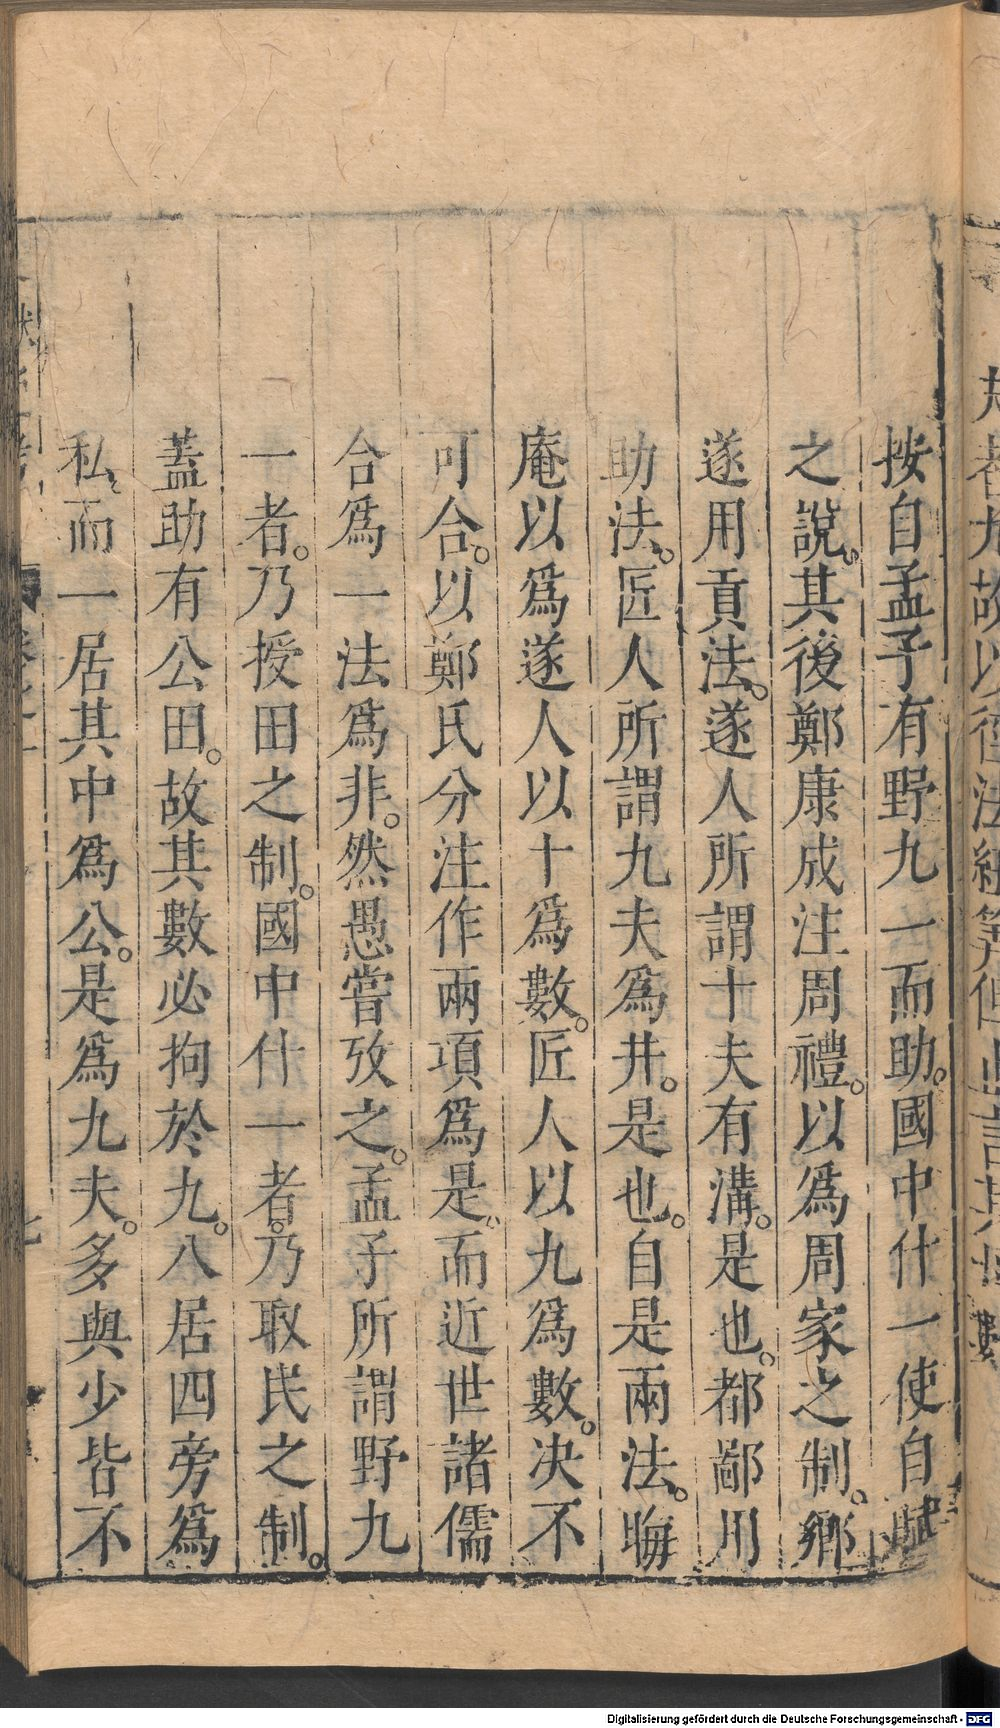 按自孟子有野九一而助。國中什一使自賦
之說。其後鄭康成注周禮。以爲周家之制。鄉
遂用貢法。遂人所謂十夫有溝。是也。都鄙用
助法。匠人所謂九夫爲井。是也。自是兩法。晦
庵以爲遂人以十爲數。匠人以九爲數。决不
可合。以鄭氏分注作兩項爲是。而近世諸儒
合爲一法爲非。然愚嘗攷之。孟子所謂野九
一者。乃授田之制。國中什一者。乃取民之制。
蓋助有公田。故其數必拘於九。八居四旁爲
私。而一居其中爲公。是爲九夫。多與少皆不
Digitalisierung gefördert durch die Deutsche Forschungsgemeinschaft - DFG